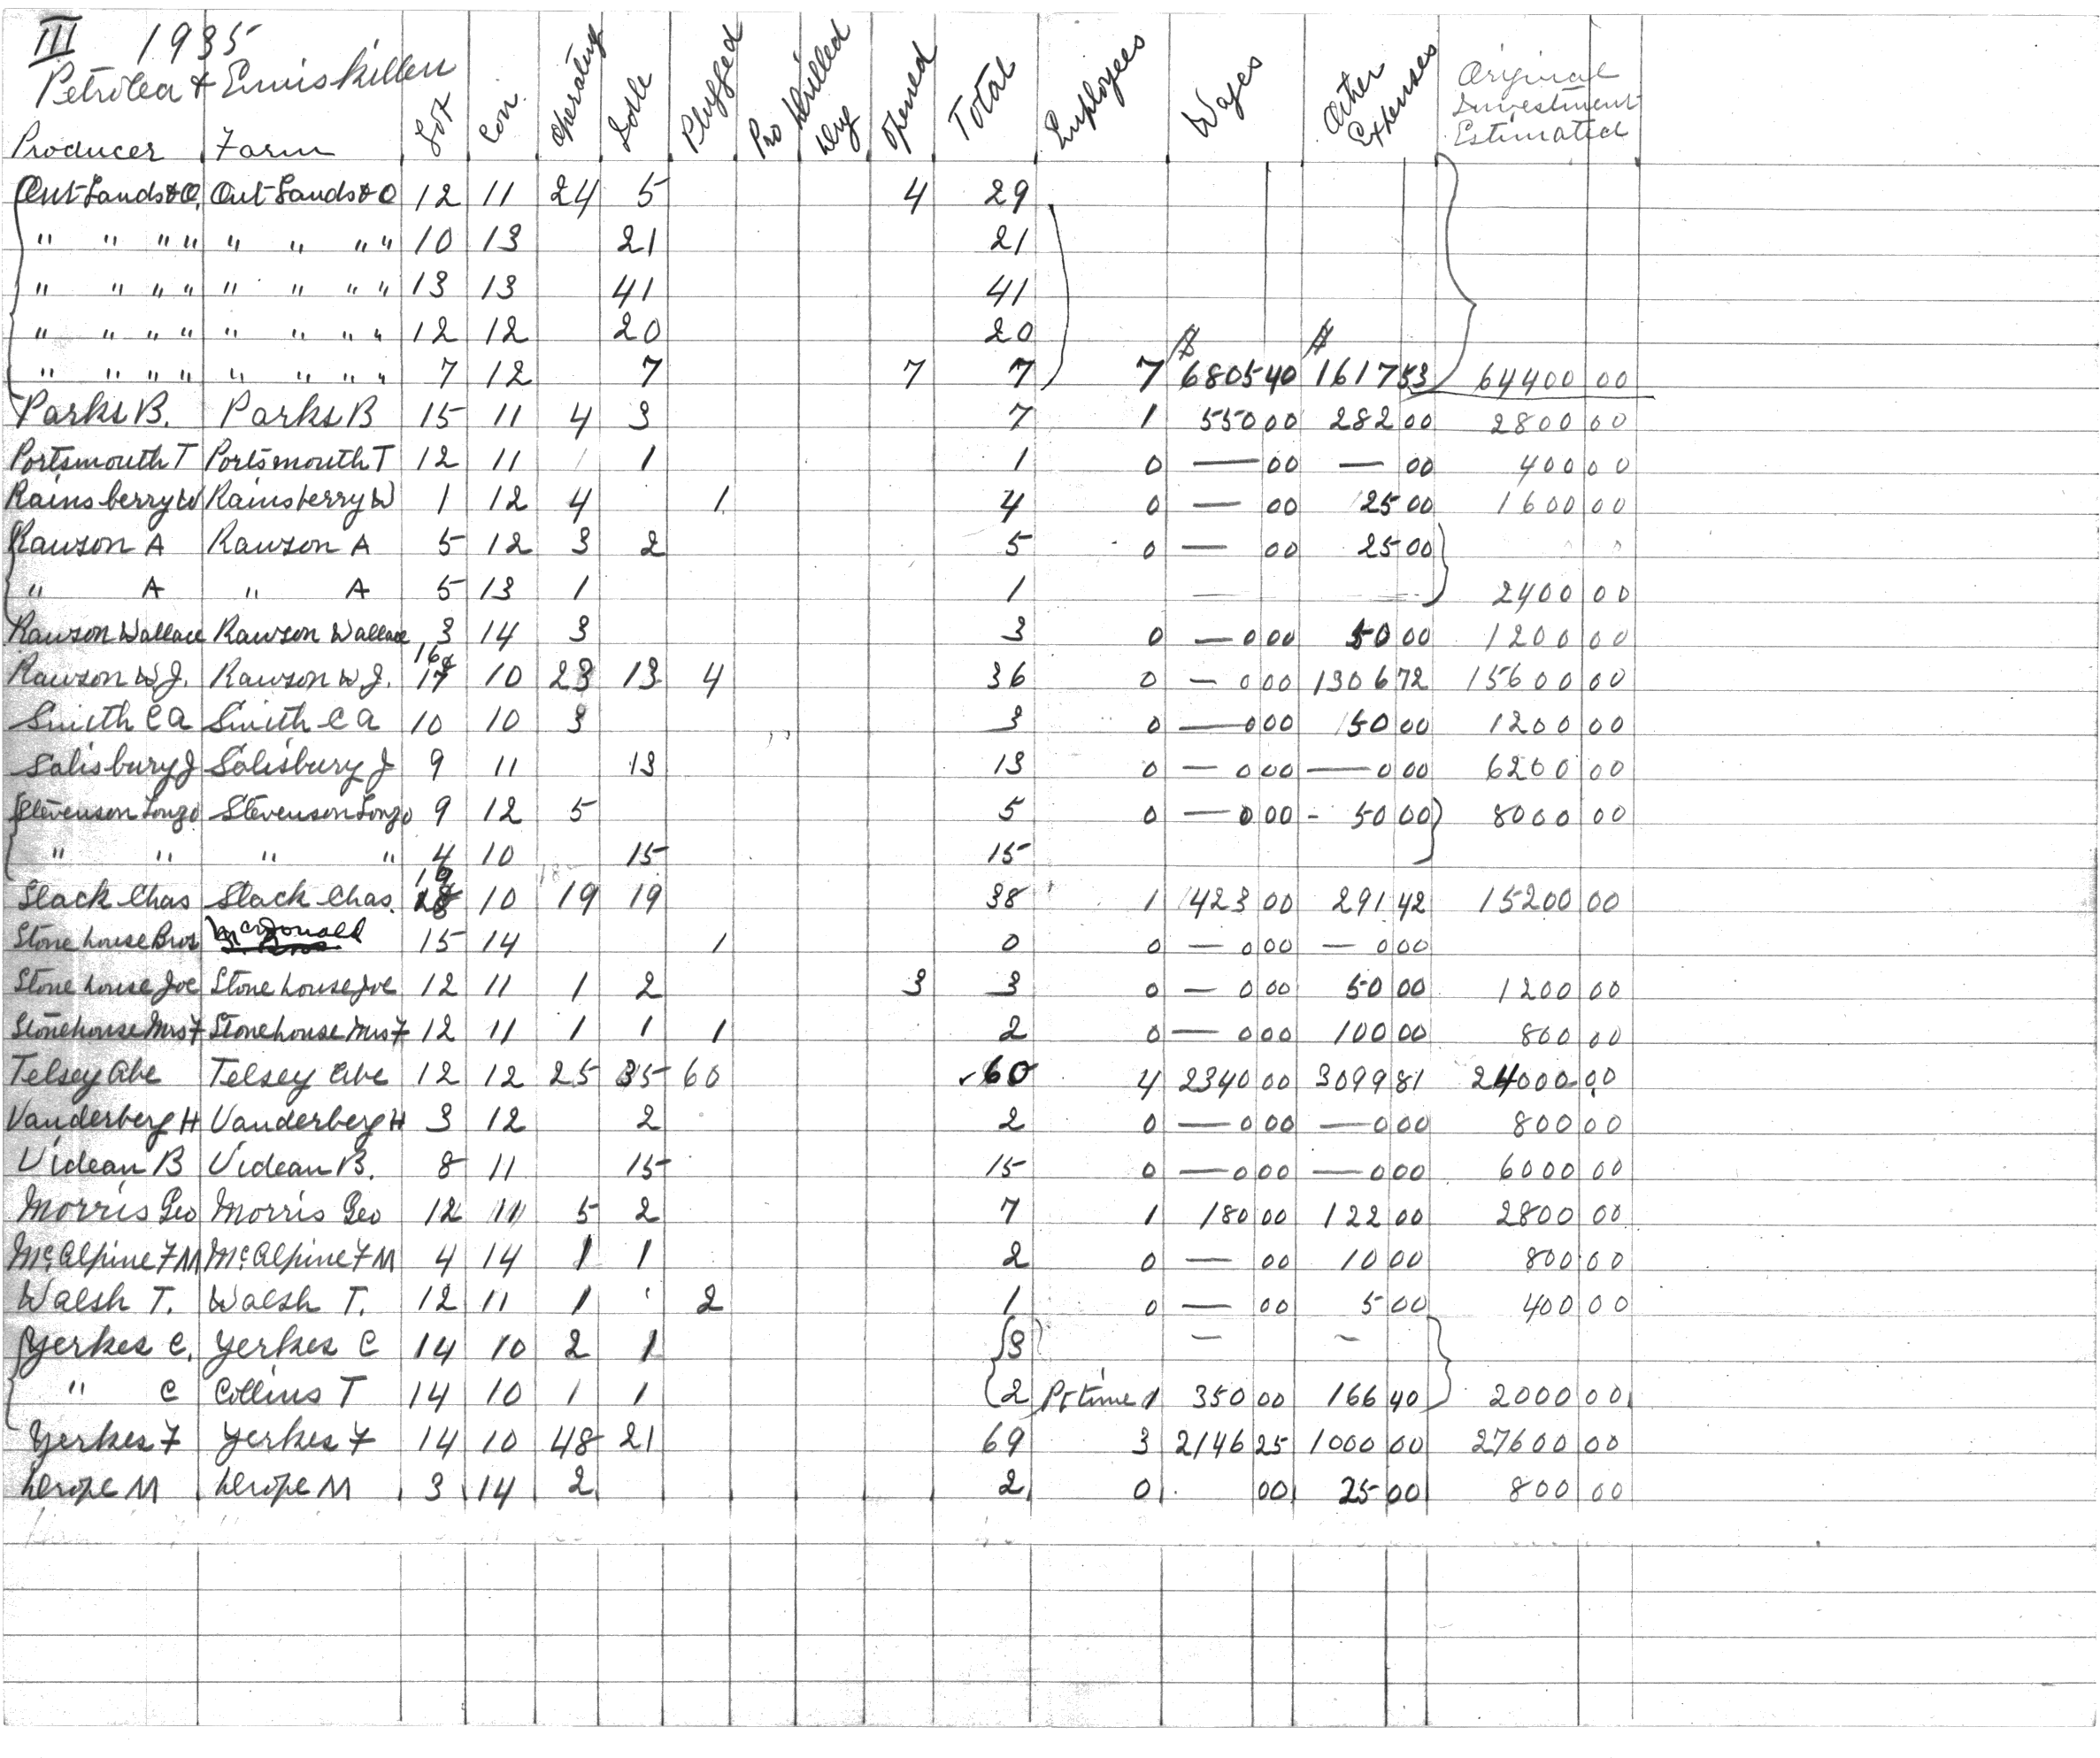 III 1935
Petrolea & Enniskillen
Producer Farm Lot Con. Operating Idle Plugged Pro Drilled Dry Opened Total Employees Wages Other Expenses Original Investment Estimated
Ont Lands & O. Ont Lands & O 12 11 24 5 4 29
" " " " " " " " 10 13 21 21
" " " " " " " " 13 13 41 41
" " " " " " " " 12 12 20 20
" " " " " " " " 7 12 7 7 7 7 $6805 40 $1617 53 64400 00
Parks B. Parks B 15 11 4 3 7 1 550 00 282 00 2800 00
Portsmouth T Portsmouth T 12 11 1 1 0 — 00 — 00 400 00
Rainsberry W Rainsberry W 1 12 4 1 4 0 — 00 25 00 1600 00
Rawson A Rawson A 5 12 3 2 5 0 — 00 25 00
" A " A 5 13 1 1 — — 2400 00
Rawson Wallace Rawson Wallace 3 14 3 3 0 — 0 00 50 00 1200 00
Rawson W J. Rawson W J. 16 & 17 10 23 13 4 36 0 — 0 00 1306 72 15600 00
Smith C A Smith C A 10 10 3 3 0 — 0 00 50 00 1200 00
Salisbury J Salisbury J 9 11 13 13 0 — 0 00 — 0 00 6200 00
Stevenson Lonzo Stevenson Lonzo 9 12 5 5 0 — 0 00 - 50 00 8000 00
" " " " 4 10 15 15
Slack Chas Slack Chas. 10 19 19 38 1 423 00 291 42 15200 00
Stonehouse Bros McDonald 15 14 1 0 0 — 0 00 — 0 00
Stonehouse Joe Stonehouse Joe 12 11 1 2 3 3 0 — 0 00 50 00 1200 00
Stonehouse Mrs F Stonehouse Mrs F 12 11 1 1 1 2 0 — 0 00 100 00 800 00
Telsey Abe Telsey Abe 12 12 25 35 60 60 4 2340 00 3099 81 24000 00
Vanderberg H Vanderberg H 3 12 2 2 0 — 0 00 — 0 00 800 00
Videan B Videan B. 8 11 15 15 0 — 0 00 — 0 00 6000 00
Morris Geo Morris Geo 12 11 5 2 7 1 180 00 122 00 2800 00
McAlpine F M McAlpine F M 4 14 1 1 2 0 — 00 10 00 800 00
Walsh T. Walsh T. 12 11 1 2 1 0 — 00 5 00 400 00
Yerkes C. Yerkes C 14 10 2 1 3 — —
" C Collins T 14 10 1 1 2 Pt time 1 350 00 166 40 2000 00
Yerkes F Yerkes F 14 10 48 21 69 3 2146 25 1000 00 27600 00
M M 3 14 2 2 0 00 25 00 800 00